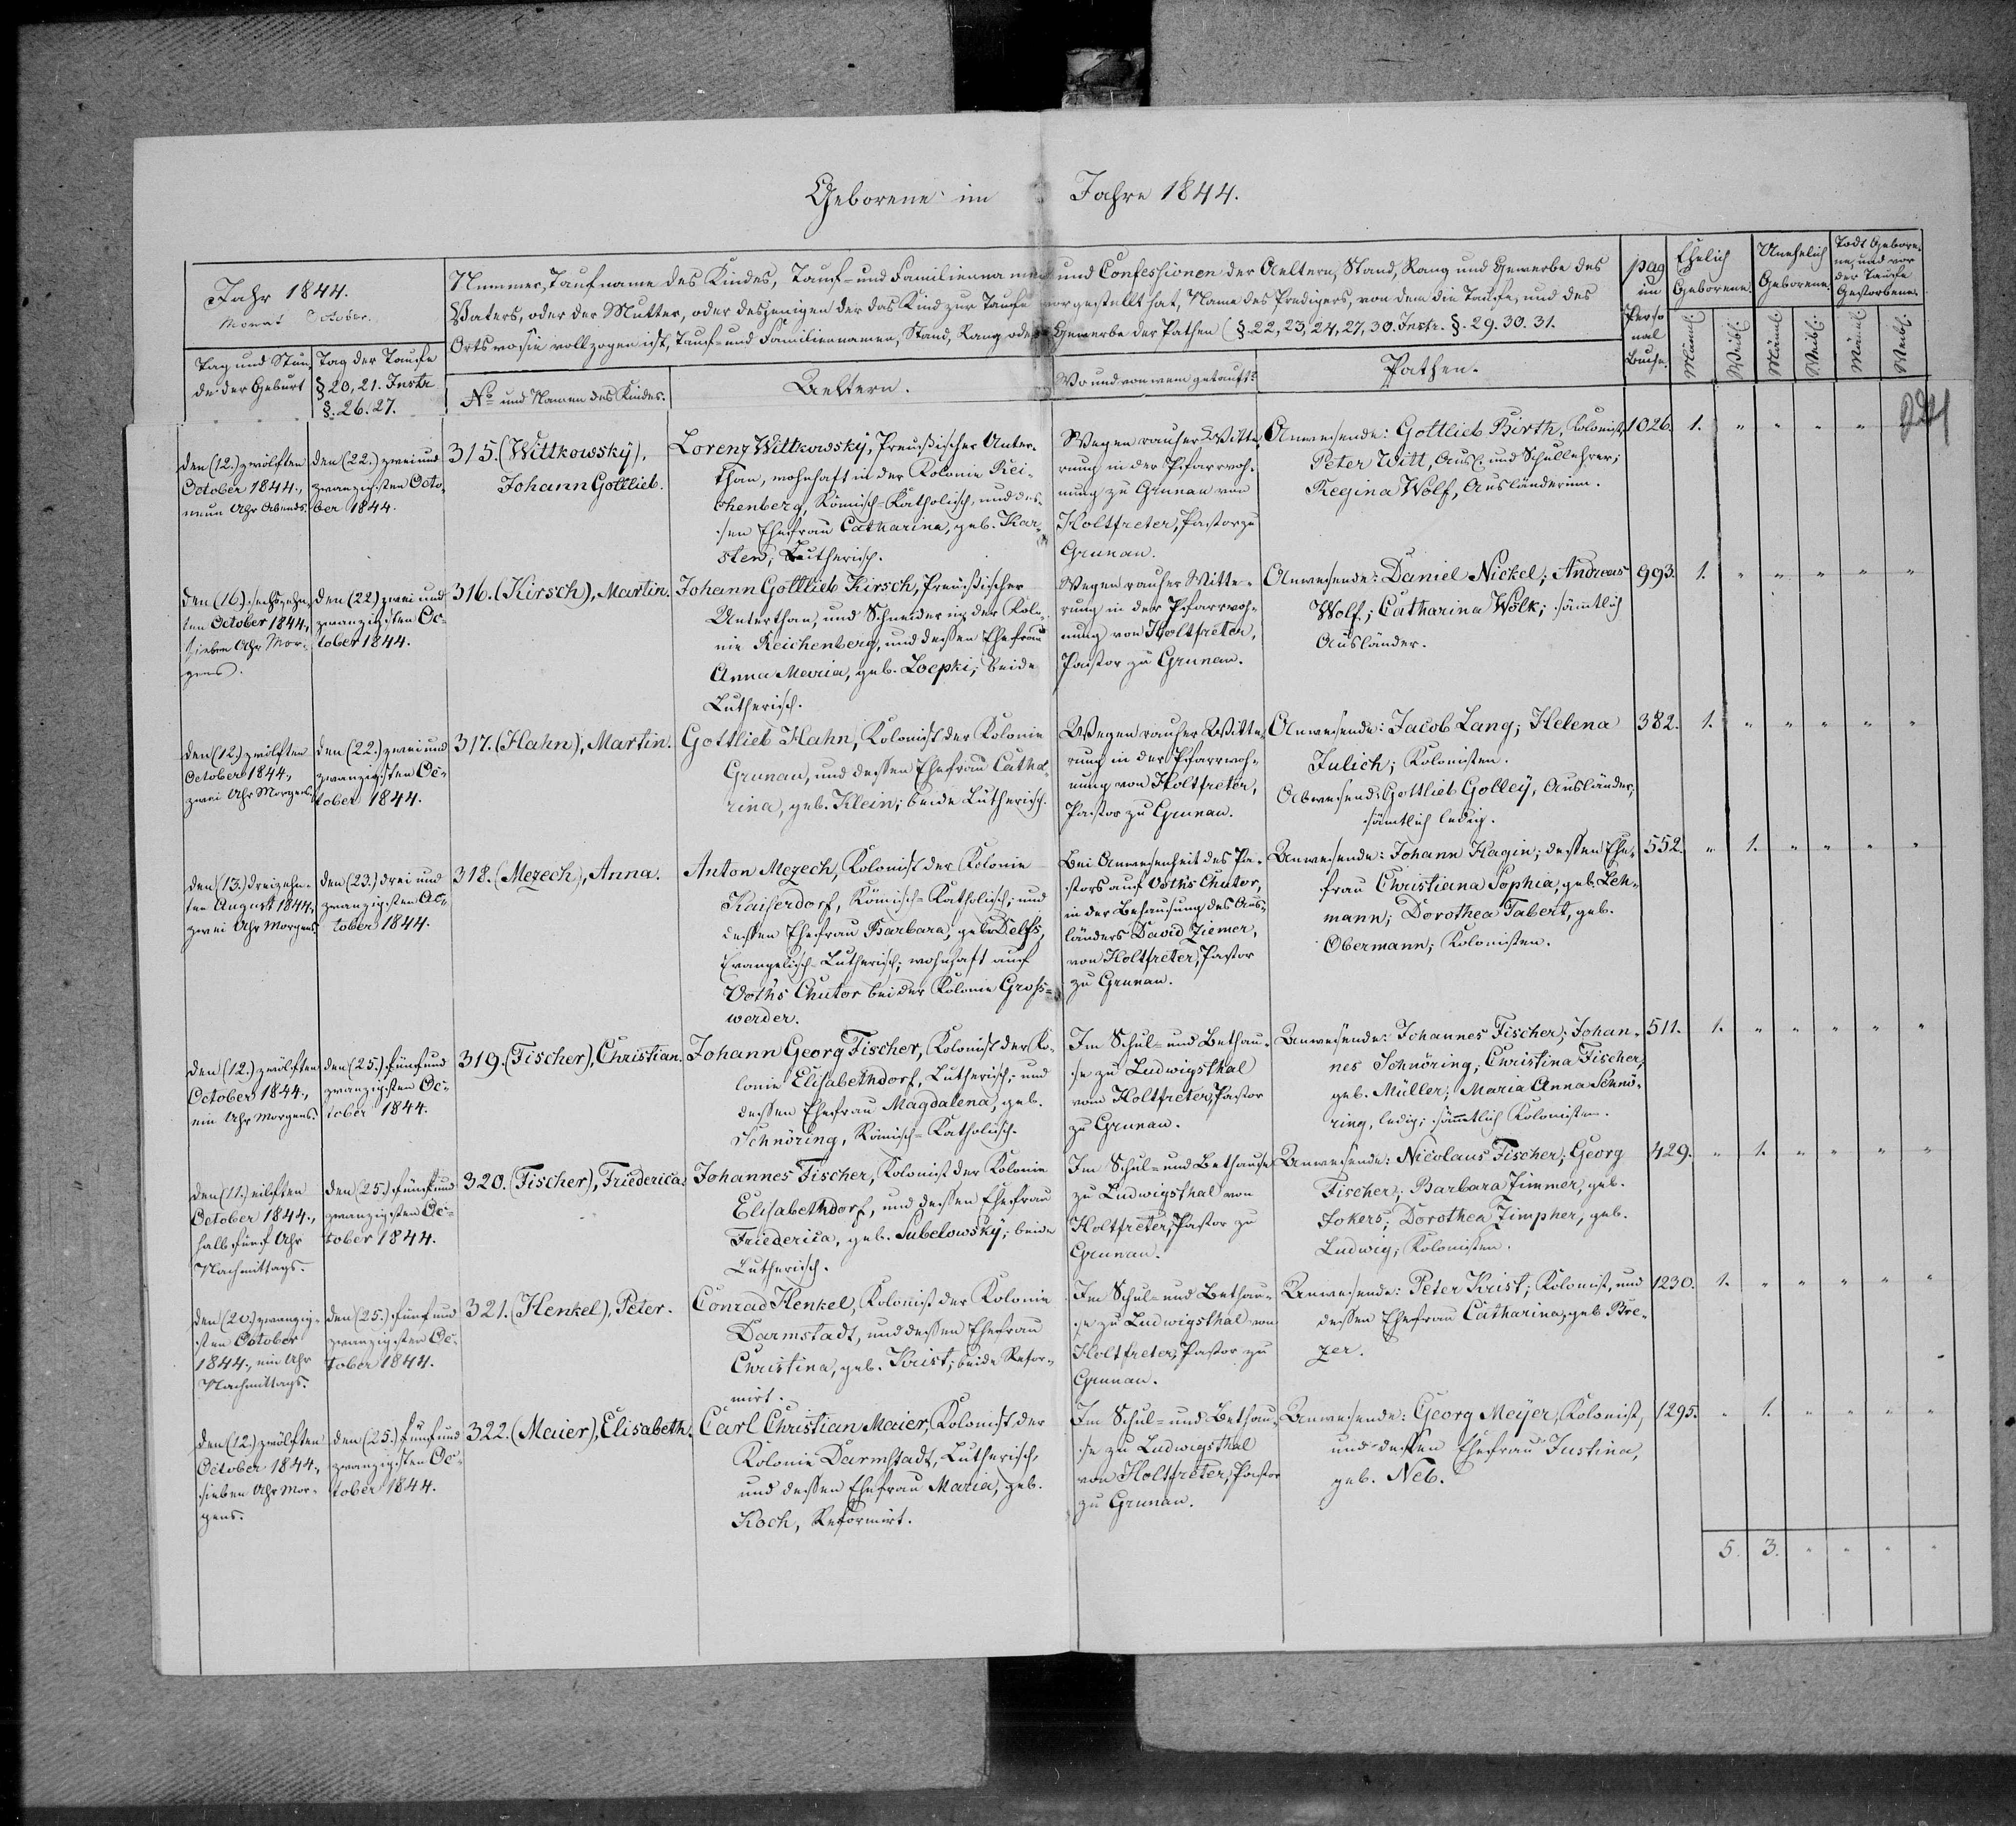 Geborene im Jahre 1844.
Jahr 1844.
Monat October.
Nummer, Taufname des Kindes, Tauf- und Familienname und Confessionen der Aeltern, Stand, Rang und Gewerbe des
Vaters, oder der Mutter, oder desjenigen der das Kind zur Taufe vorgestellt hat, Name des Predigers, von dem die Taufe, und des
Orts wo sie vollzogen ist, Tauf- und Familiennamen, Stand, Rang oder Gewerbe der Pathen (§. 22, 23, 24, 27, 30. Instr. §. 29. 30. 31.
pag
im
Perso
nal
Buche.
Ehelich
Geborene.
Unehelich
Geborene.
Todt Gebore-
ne, und vor
der Taufe
Gestorbene.
Tag und Stun-
de der Geburt
Tag der Taufe
§ 20, 21. Instr
§. 26. 27.
No und Namen des Kindes.
Aeltern.
Wo und von wem getauft?
Pathen.
Männl.
Weibl.
Männl.
Weibl.
Männl.
Weibl.
den (12.) zwölften
October 1844.,
neun Uhr Abends.
den (22.) zwei und
zwanzigsten Octo-
ber 1844.
315. (Wittkowsky),
Johann Gottlieb.
Lorenz Wittkowsky, Preußischer Unter-
than, wohnhaft in der Kolonie Rei-
chenberg, Römisch-Katholisch, und des-
sen Ehefrau Catharina, geb. Kar-
sten, Lutherisch.
Wegen rauher Witte-
rung in der Pfarrwoh-
nung zu Grunau von
Holtfreter, Pastor zu
Grunau.
Anwesende: Gottlieb Birth, Kolonist;
Peter Witt, Ausl. und Schullehrer;
Regina Wolf, Ausländerinn.
1026. 1. " " " "
den (16.) sechszehn-
ten October 1844.,
sieben Uhr Mor-
gens.
den (22.) zwei und
zwanzigsten Oc-
tober 1844.
316. (Kirsch), Martin.
Johann Gottlieb Kirsch, Preußischer
Unterthan, und Schneider in der Kolo-
nie Reichenberg, und dessen Ehefrau
Anna Maria, geb. Loepki, beide
Lutherisch.
Wegen rauher Witte-
rung in der Pfarrwoh-
nung von Holtfreter,
Pastor zu Grunau.
Anwesende: Daniel Nickel; Andreas
Wolf; Catharina Wölk; sämmtlich
Ausländer.
993. 1. " " " " "
den (12.) zwölften
October 1844.,
zwei Uhr Morgens.
den (22.) zwei und
zwanzigsten Oc-
tober 1844.
317. (Hahn), Martin.
Gottlieb Hahn, Kolonist der Kolonie
Grunau, und dessen Ehefrau Catha-
rina, geb. Klein; beide Lutherisch.
Wegen rauher Witte-
rung in der Pfarrwoh-
nung von Holtfreter,
Pastor zu Grunau.
Anwesende: Jacob Lang; Helena
Julich; Kolonisten.
Abwesend: Gottlieb Golley, Ausländer;
sämtlich ledig.
382. 1. " " " " "
den (13.) dreizehn-
ten August 1844.,
zwei Uhr Morgens.
den (23.) drei und
zwanzigsten Oc-
tober 1844.
318. (Mezech), Anna.
Anton Mezech, Kolonist der Kolonie
Kaiserdorf, Römisch-Katholisch, und
dessen Ehefrau Barbara, geb. Delfs,
Evangelisch-Lutherisch; wohnhaft auf
Voth's Chutor bei der Kolonie Gross-
werder.
Bei Anwesenheit des Pa-
stors auf Voth's Chutor,
in der Behausung des Aus-
länders David Ziemer,
von Holtfreter, Pastor
zu Grunau.
Anwesende: Johann Kagin; dessen Ehe-
frau Christiana Sophia, geb. Leh-
mann; Dorothea Tabert, geb.
Obermann; Kolonisten.
552. " 1. " " " "
den (12.) zwölften
October 1844.,
ein Uhr Morgens.
den (25.) fünf und
zwanzigsten Oc-
tober 1844.
319. (Fischer), Christian.
Johann Georg Fischer, Kolonist der Ko-
lonie Elisabethdorf, Lutherisch, und
dessen Ehefrau Magdalena, geb.
Schnöring, Römisch-Katholisch.
Im Schul- und Bethau-
se zu Ludwigsthal
vom Holtfreter, Pastor
zu Grunau.
Anwesende: Johannes Fischer; Johan-
nes Schnöring; Christina Fischer,
geb. Müller; Maria Anna Schnö-
ring, ledig; sämmtlich Kolonisten.
511. 1. " " " " "
den (11.) eilften
October 1844.,
halb fünf Uhr
Nachmittags.
den (25.) fünf und
zwanzigsten Oc-
tober 1844.
320. (Fischer), Friederica.
Johannes Fischer, Kolonist der Kolonie
Elisabethdorf, und dessen Ehefrau
Friederica, geb. Subelowsky; beide
Lutherisch.
Im Schul- und Bethause
zu Ludwigsthal von
Holtfreter, Pastor zu
Grunau.
Anwesende: Nicolaus Fischer; Georg
Fischer; Barbara Zimmer, geb.
Jokers; Dorothea Zimpher, geb.
Ludwig; Kolonisten.
429. " 1. " " " "
den (20.) zwanzig-
sten October
1844., ein Uhr
Nachmittags.
den (25.) fünf und
zwanzigsten Oc-
tober 1844.
321. (Henkel), Peter.
Conrad Henkel, Kolonist der Kolonie
Darmstadt, und dessen Ehefrau
Christina, geb. Krist; beide Refor-
mirt.
Im Schul- und Bethau-
se zu Ludwigsthal von
Holtfreter, Pastor zu
Grunau.
Anwesende: Peter Krist, Kolonist, und
dessen Ehefrau Catharina, geb. Bre-
zer.
1230. 1. " " " " "
den (12.) zwölften
October 1844.,
sieben Uhr Mor-
gens.
den (25.) fünf und
zwanzigsten Oc-
tober 1844.
322. (Maier), Elisabeth.
Carl Christian Maier, Kolonist der
Kolonie Darmstadt, Lutherisch,
und dessen Ehefrau Maria, geb.
Koch, Reformirt.
Im Schul- und Bethau-
se zu Ludwigsthal
von Holtfreter, Pastor
zu Grunau.
Anwesende: Georg Meyer, Kolonist,
und dessen Ehefrau Justina,
geb. Neb.
1295. " 1. " " " "
5. 3. " " " "